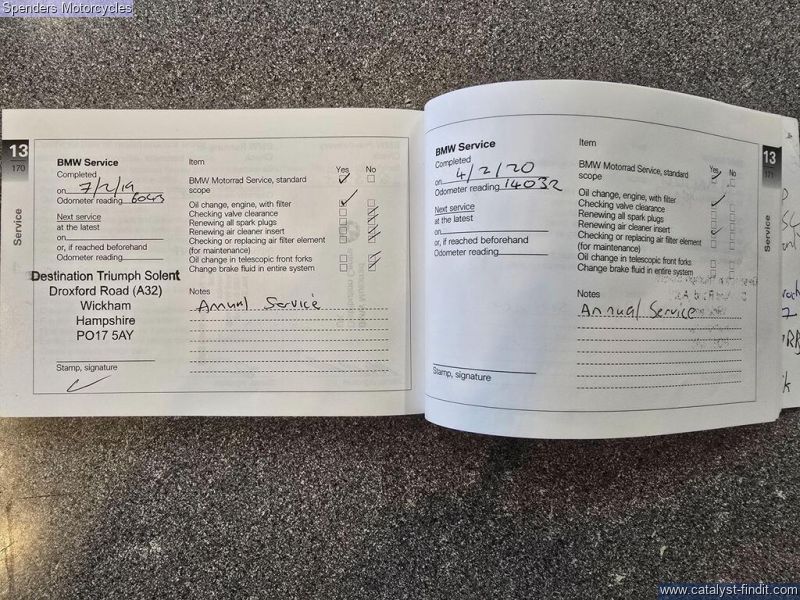 Spenders Motorcycles
13
170
Service
BMW Service
Completed
on 7/2/19
Odometer reading 6043
Next service
at the latest
on
or, if reached beforehand
Odometer reading
Destination Triumph Solent
Droxford Road (A32)
Wickham
Hampshire
PO17 5AY
Stamp, signature
Item
Yes No
BMW Motorrad Service, standard
scope
Oil change, engine, with filter
Checking valve clearance
Renewing all spark plugs
Renewing air cleaner insert
Checking or replacing air filter element
(for maintenance)
Oil change in telescopic front forks
Change brake fluid in entire system
Notes
Annual Service
BMW Service
Completed
on 4/2/20
Odometer reading 14032
Next service
at the latest
on
or, if reached beforehand
Odometer reading
Stamp, signature
Item
Yes No
BMW Motorrad Service, standard
scope
Oil change, engine, with filter
Checking valve clearance
Renewing all spark plugs
Renewing air cleaner insert
Checking or replacing air filter element
(for maintenance)
Oil change in telescopic front forks
Change brake fluid in entire system
Notes
Annual Service
13
171
Service
www.catalyst-findit.com